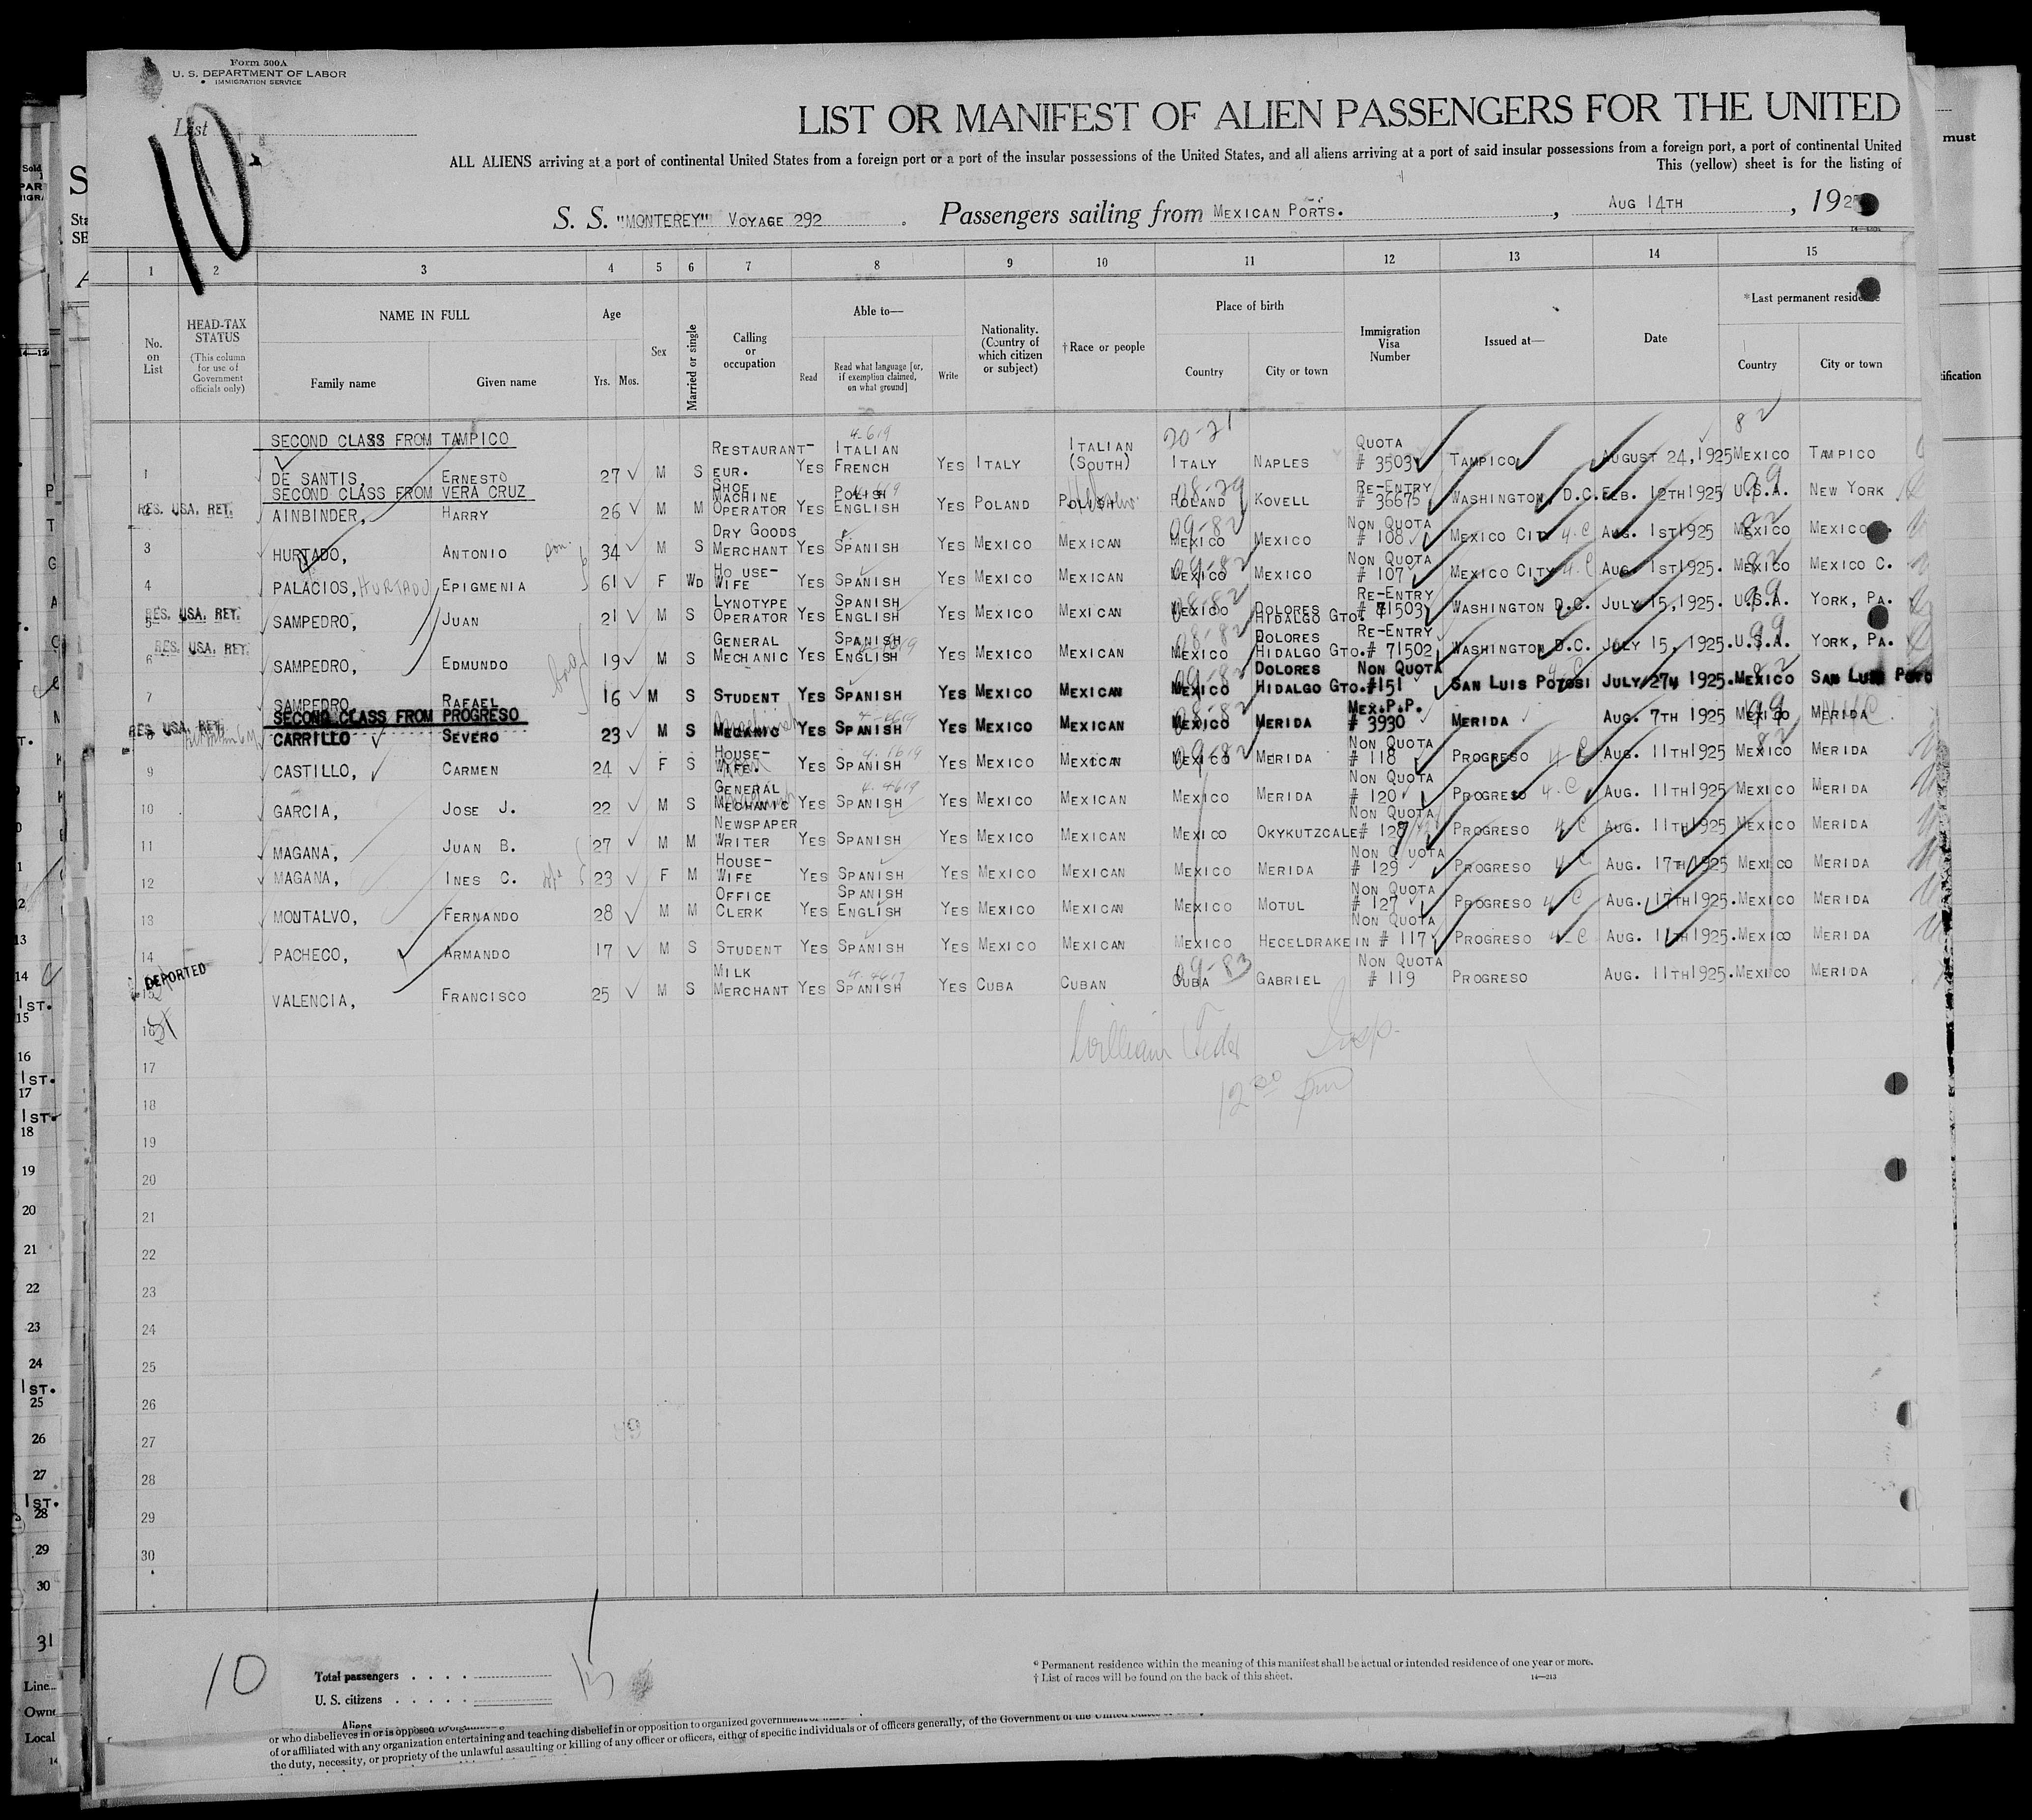 Form 500A
U. S. DEPARTMENT OF LABOR
IMMIGRATION SERVICE
List
10
LIST OR MANIFEST OF ALIEN PASSENGERS FOR THE UNITED
ALL ALIENS arriving at a port of continental United States from a foreign port or a port of the insular possessions of the United States, and all aliens arriving at a port of said insular possessions from a foreign port, a port of continental United
This (yellow) sheet is for the listing of
S. S. "MONTEREY" VOYAGE 292 . Passengers sailing from MEXICAN PORTS. , AUG 14TH , 192
1 2 3 4 5 6 7 8 9 10 11 12 13 14 15
No. on List
HEAD-TAX STATUS
(This column for use of Government officials only)
NAME IN FULL
Family name Given name
Age
Yrs. Mos.
Sex
Married or single
Calling or occupation
Able to—
Read
Read what language [or, if exemption claimed, on what ground]
Write
Nationality. (Country of which citizen or subject)
† Race or people
Place of birth
Country City or town
Immigration Visa Number
Issued at—
Date
*Last permanent residence
Country City or town
SECOND CLASS FROM TAMPICO
1 DE SANTIS, ERNESTO 27 M S RESTAURANT-EUR. YES ITALIAN FRENCH YES ITALY ITALIAN (SOUTH) ITALY NAPLES QUOTA # 3503 TAMPICO AUGUST 24, 1925 MEXICO TAMPICO
SECOND CLASS FROM VERA CRUZ
RES. USA. RET. AINBINDER, HARRY 26 M M SHOE MACHINE OPERATOR YES POLISH ENGLISH YES POLAND POLISH POLAND KOVELL RE-ENTRY # 36675 WASHINGTON, D.C. FEB. 12TH 1925 U.S.A. NEW YORK
3 HURTADO, ANTONIO 34 M S DRY GOODS MERCHANT YES SPANISH YES MEXICO MEXICAN MEXICO MEXICO NON QUOTA # 108 MEXICO CITY 4-C AUG. 1ST 1925 MEXICO MEXICO
4 PALACIOS, HURTADO EPIGMENIA 61 F WD HOUSE-WIFE YES SPANISH YES MEXICO MEXICAN MEXICO MEXICO NON QUOTA # 107 MEXICO CITY 4-C AUG. 1ST 1925. MEXICO MEXICO C.
RES. USA. RET. 5 SAMPEDRO, JUAN 21 M S LYNOTYPE OPERATOR YES SPANISH ENGLISH YES MEXICO MEXICAN MEXICO DOLORES HIDALGO GTO. RE-ENTRY # 71503 WASHINGTON D.C. JULY 15, 1925. U.S.A. YORK, PA.
RES. USA. RET. 6 SAMPEDRO, EDMUNDO 19 M S GENERAL MECHANIC YES SPANISH ENGLISH YES MEXICO MEXICAN MEXICO DOLORES HIDALGO GTO. RE-ENTRY # 71502 WASHINGTON D.C. JULY 15, 1925. U.S.A. YORK, PA.
7 SAMPEDRO RAFAEL 16 M S STUDENT YES SPANISH YES MEXICO MEXICAN MEXICO DOLORES HIDALGO GTO. NON QUOTA #151 SAN LUIS POTOSI JULY 27H 1925. MEXICO SAN LUIS POTO
SECOND CLASS FROM PROGRESO
RES. USA. RET. 8 CARRILLO SEVERO 23 M S MECANIC YES SPANISH YES MEXICO MEXICAN MEXICO MERIDA MEX.P.P. # 3930 MERIDA AUG. 7TH 1925 MEXICO MERIDA
9 CASTILLO, CARMEN 24 F S HOUSE-WIFE. YES SPANISH YES MEXICO MEXICAN MEXICO MERIDA NON QUOTA # 118 PROGRESO 4-C AUG. 11TH 1925 MEXICO MERIDA
10 GARCIA, JOSE J. 22 M S GENERAL MECHANIC YES SPANISH YES MEXICO MEXICAN MEXICO MERIDA NON QUOTA # 120 PROGRESO 4-C AUG. 11TH 1925 MEXICO MERIDA
11 MAGANA, JUAN B. 27 M M NEWSPAPER WRITER YES SPANISH YES MEXICO MEXICAN MEXICO OKYKUTZCALE NON QUOTA # 128 PROGRESO 4-C AUG. 11TH 1925 MEXICO MERIDA
12 MAGANA, INES C. wife 23 F M HOUSE-WIFE YES SPANISH YES MEXICO MEXICAN MEXICO MERIDA NON QUOTA # 129 PROGRESO 4-C AUG. 17TH 1925 MEXICO MERIDA
13 MONTALVO, FERNANDO 28 M M OFFICE CLERK YES SPANISH ENGLISH YES MEXICO MEXICAN MEXICO MOTUL NON QUOTA # 127 PROGRESO 4-C AUG. 17TH 1925. MEXICO MERIDA
14 PACHECO, ARMANDO 17 M S STUDENT YES SPANISH YES MEXICO MEXICAN MEXICO HECELDRAKEIN NON QUOTA # 117 PROGRESO 4-C AUG. 11TH 1925. MEXICO MERIDA
DEPORTED 15 VALENCIA, FRANCISCO 25 M S MILK MERCHANT YES SPANISH YES CUBA CUBAN CUBA GABRIEL NON QUOTA # 119 PROGRESO AUG. 11TH 1925. MEXICO MERIDA
16
17
18
19
20
21
22
23
24
25
26
27
28
29
30
William Insp.
12 00 pm
10
Total passengers . . . .
15
U. S. citizens . . . . .
Aliens
* Permanent residence within the meaning of this manifest shall be actual or intended residence of one year or more.
† List of races will be found on the back of this sheet.
14—213
of or affiliated with any organization entertaining and teaching disbelief in or opposition to organized government
the duty, necessity, or propriety of the unlawful assaulting or killing of any officer or officers, either of specific individuals or of officers generally, of the Government of the United States